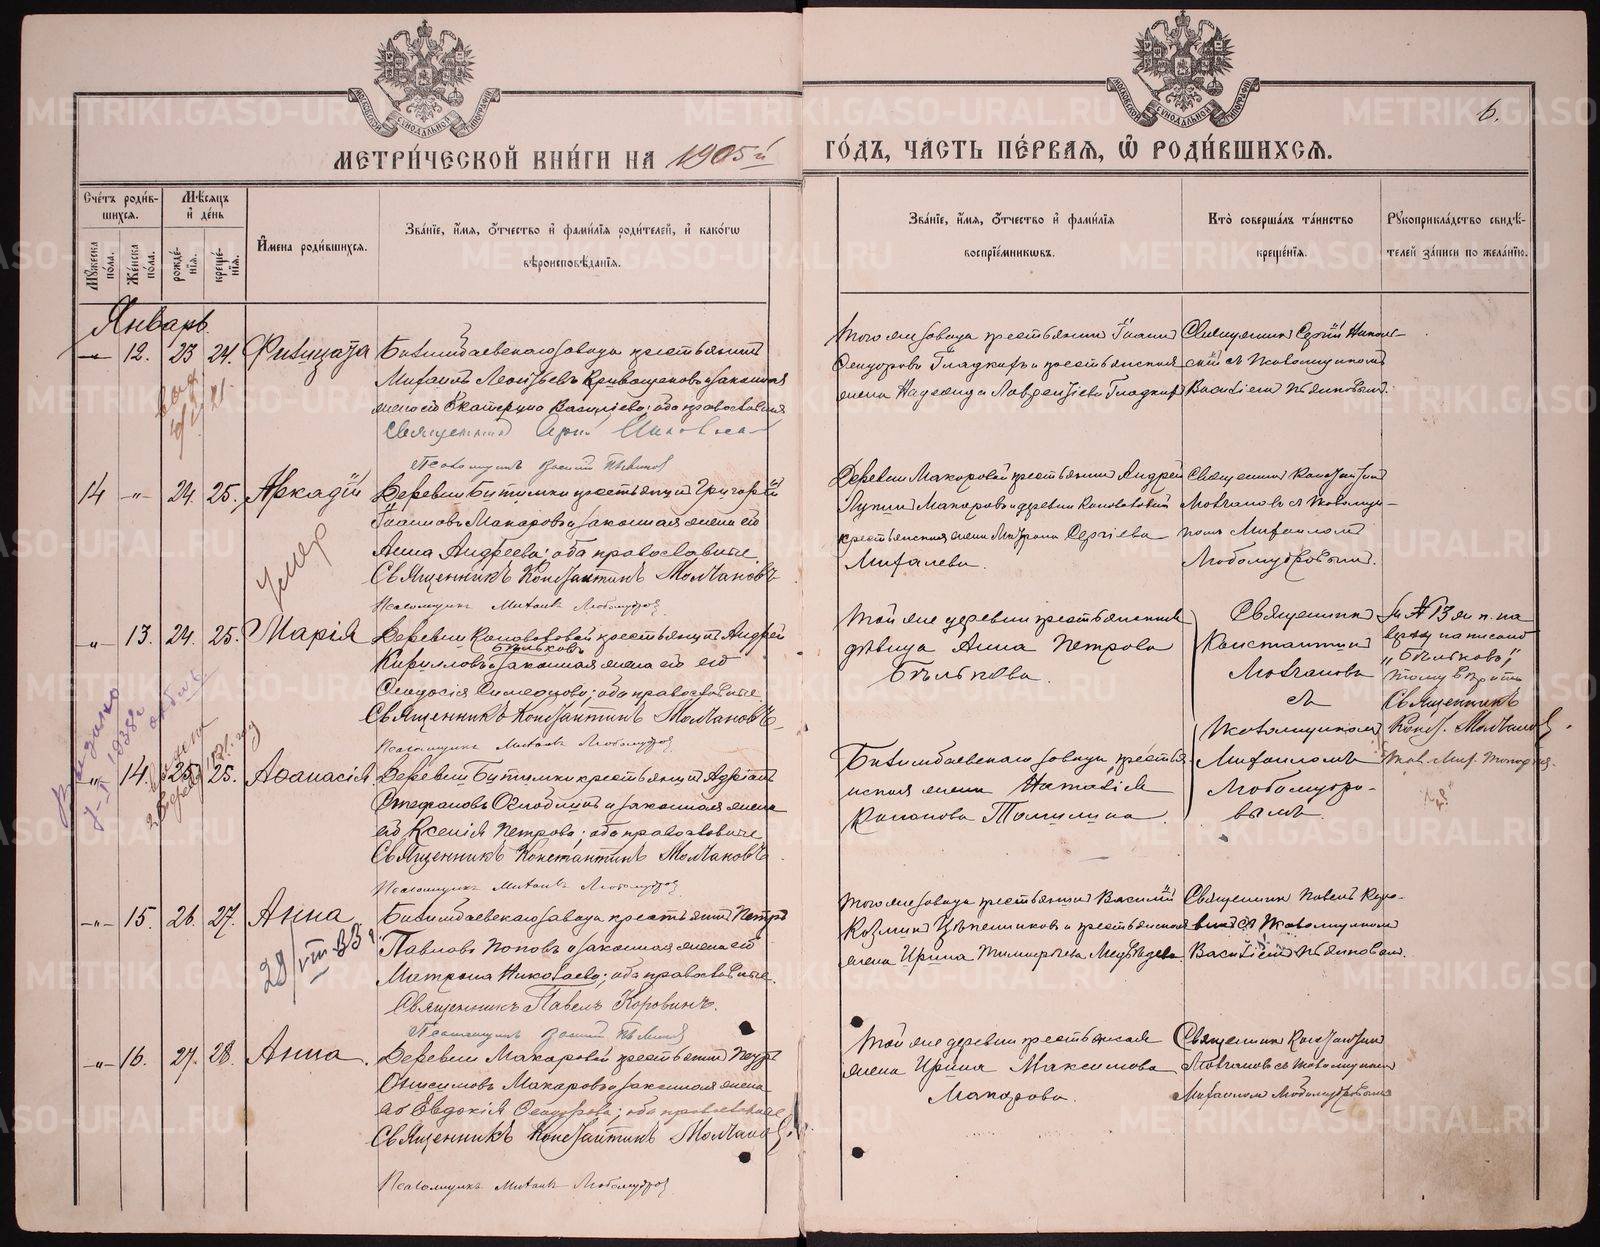 МЕТРИ́ЧЕСКОЙ КНИ́ГИ НА 1905й
ГО́ДЪ, ЧА́СТЬ ПЕ́РВАЯ, Ѿ РОДИ́ВШИХСЯ.
6.
Сче́тъ роди́в-
шихся.
Мѣ́сяцъ
и҆ де́нь
Мꙋ́жеска по́ла.
Же́нска по́ла.
рожде́-
нїя.
креще́-
нїя.
И҆мена роди́вшихся.
Зва́нїе, и҆́мя, ѻ҆́тчество и҆ фами́лїя роди́телей, и҆ како́гѡ
вѣроисповѣ́данїя.
Зва́нїе, и҆́мя, ѻ҆́тчество и҆ фами́лїя
воспрїе́мникѡвъ.
Кто̀ соверша́лъ та́инство
креще́нїя.
Рꙋкоприкла́дство свидѣ́-
телей за́писи по жела́нїю.
Январь.
-„- 12. 23 24.
Билимбаевскаго завода крестьянинъ
Михаилъ Леонтьевъ Кривощековъ и законная
жена его Екатерина Васильева; оба православные
Священникъ
Псаломщикъ Василій Пьянковъ
Того же завода крестьянинъ Іоаннъ
Ѳеодоровъ Гладкихъ и крестьянская
жена Надежда Лаврентіева Гладкихъ
Священникъ Сергій Никол-
скій съ псаломщикомъ
Василіемъ Пьянковымъ.
14 -„- 24. 25. Аркадій
умер
Деревни Битимки крестьянинъ Григорій
Іоанновъ Макаровъ и законная жена его
Анна Андреева; оба православные
Священникъ Константинъ Молчановъ
Псаломщикъ Михаилъ Любомудровъ
Деревни Макаровой крестьянинъ Андрей
Лукинъ Макаровъ и деревни Коноваловой
крестьянская жена Матрона Сергіева
Михалева.
Священникъ Константинъ
Молчановъ съ псаломщи-
комъ Михаиломъ
Любомудровымъ.
„ 13. 24. 25. Марія
Деревни Коноваловой крестьянинъ Андрей
Бѣльковъ
Кирилловъ и законная жена его его
Ѳеодосія Симеонова; оба православные
Священникъ Константинъ Молчановъ
Псаломщикъ Михаилъ Любомудровъ
Той же деревни крестьянская
дѣвица Анна Петрова
Бѣлькова.
Священникъ
Константинъ
Молчановъ
съ
псаломщикомъ
Михаиломъ
Любомудро-
вымъ.
Въ № 13 м. п. на-
верху написано
„Бѣльковъ“,
тому вѣрить
Священникъ
Конст. Молчановъ
„ 14. 25. 25. Аѳанасія
Деревни Битимки крестьянинъ Адріанъ
Стефановъ и законная жена
его Ксенія Петрова; оба православные
Священникъ Константинъ Молчановъ
Псаломщикъ Михаилъ Любомудровъ
Билимбаевскаго завода крестья-
нская жена Наталія
Томилина.
-„- 15. 26. 27. Анна
Билимбаевскаго завода крестьянинъ Петръ
Павловъ Поповъ и законная жена его
Матрона Николаева; оба православные.
Священникъ Павелъ Коровинъ.
Псаломщикъ Василій Пьянковъ
Того же завода крестьянинъ Василій
Козминъ и крестьянская
жена Ирина Медвѣдева
Священникъ Павелъ Коро-
винъ съ псаломщикомъ
Василіемъ Пьянковымъ.
-„- 16. 27. 28. Анна.
Деревни Макаровой крестьянинъ Петръ
Онисимовъ Макаровъ и законная жена
его Евдокія Ѳеодорова; оба православные
Священникъ Константинъ Молчановъ
Псаломщикъ Михаилъ Любомудровъ
Той же деревни крестьянская
жена Ирина Максимова
Макарова.
Священникъ Константинъ
Молчановъ съ псаломщикомъ
Михаиломъ Любомудровымъ
METRIKI.GASO-URAL.RU